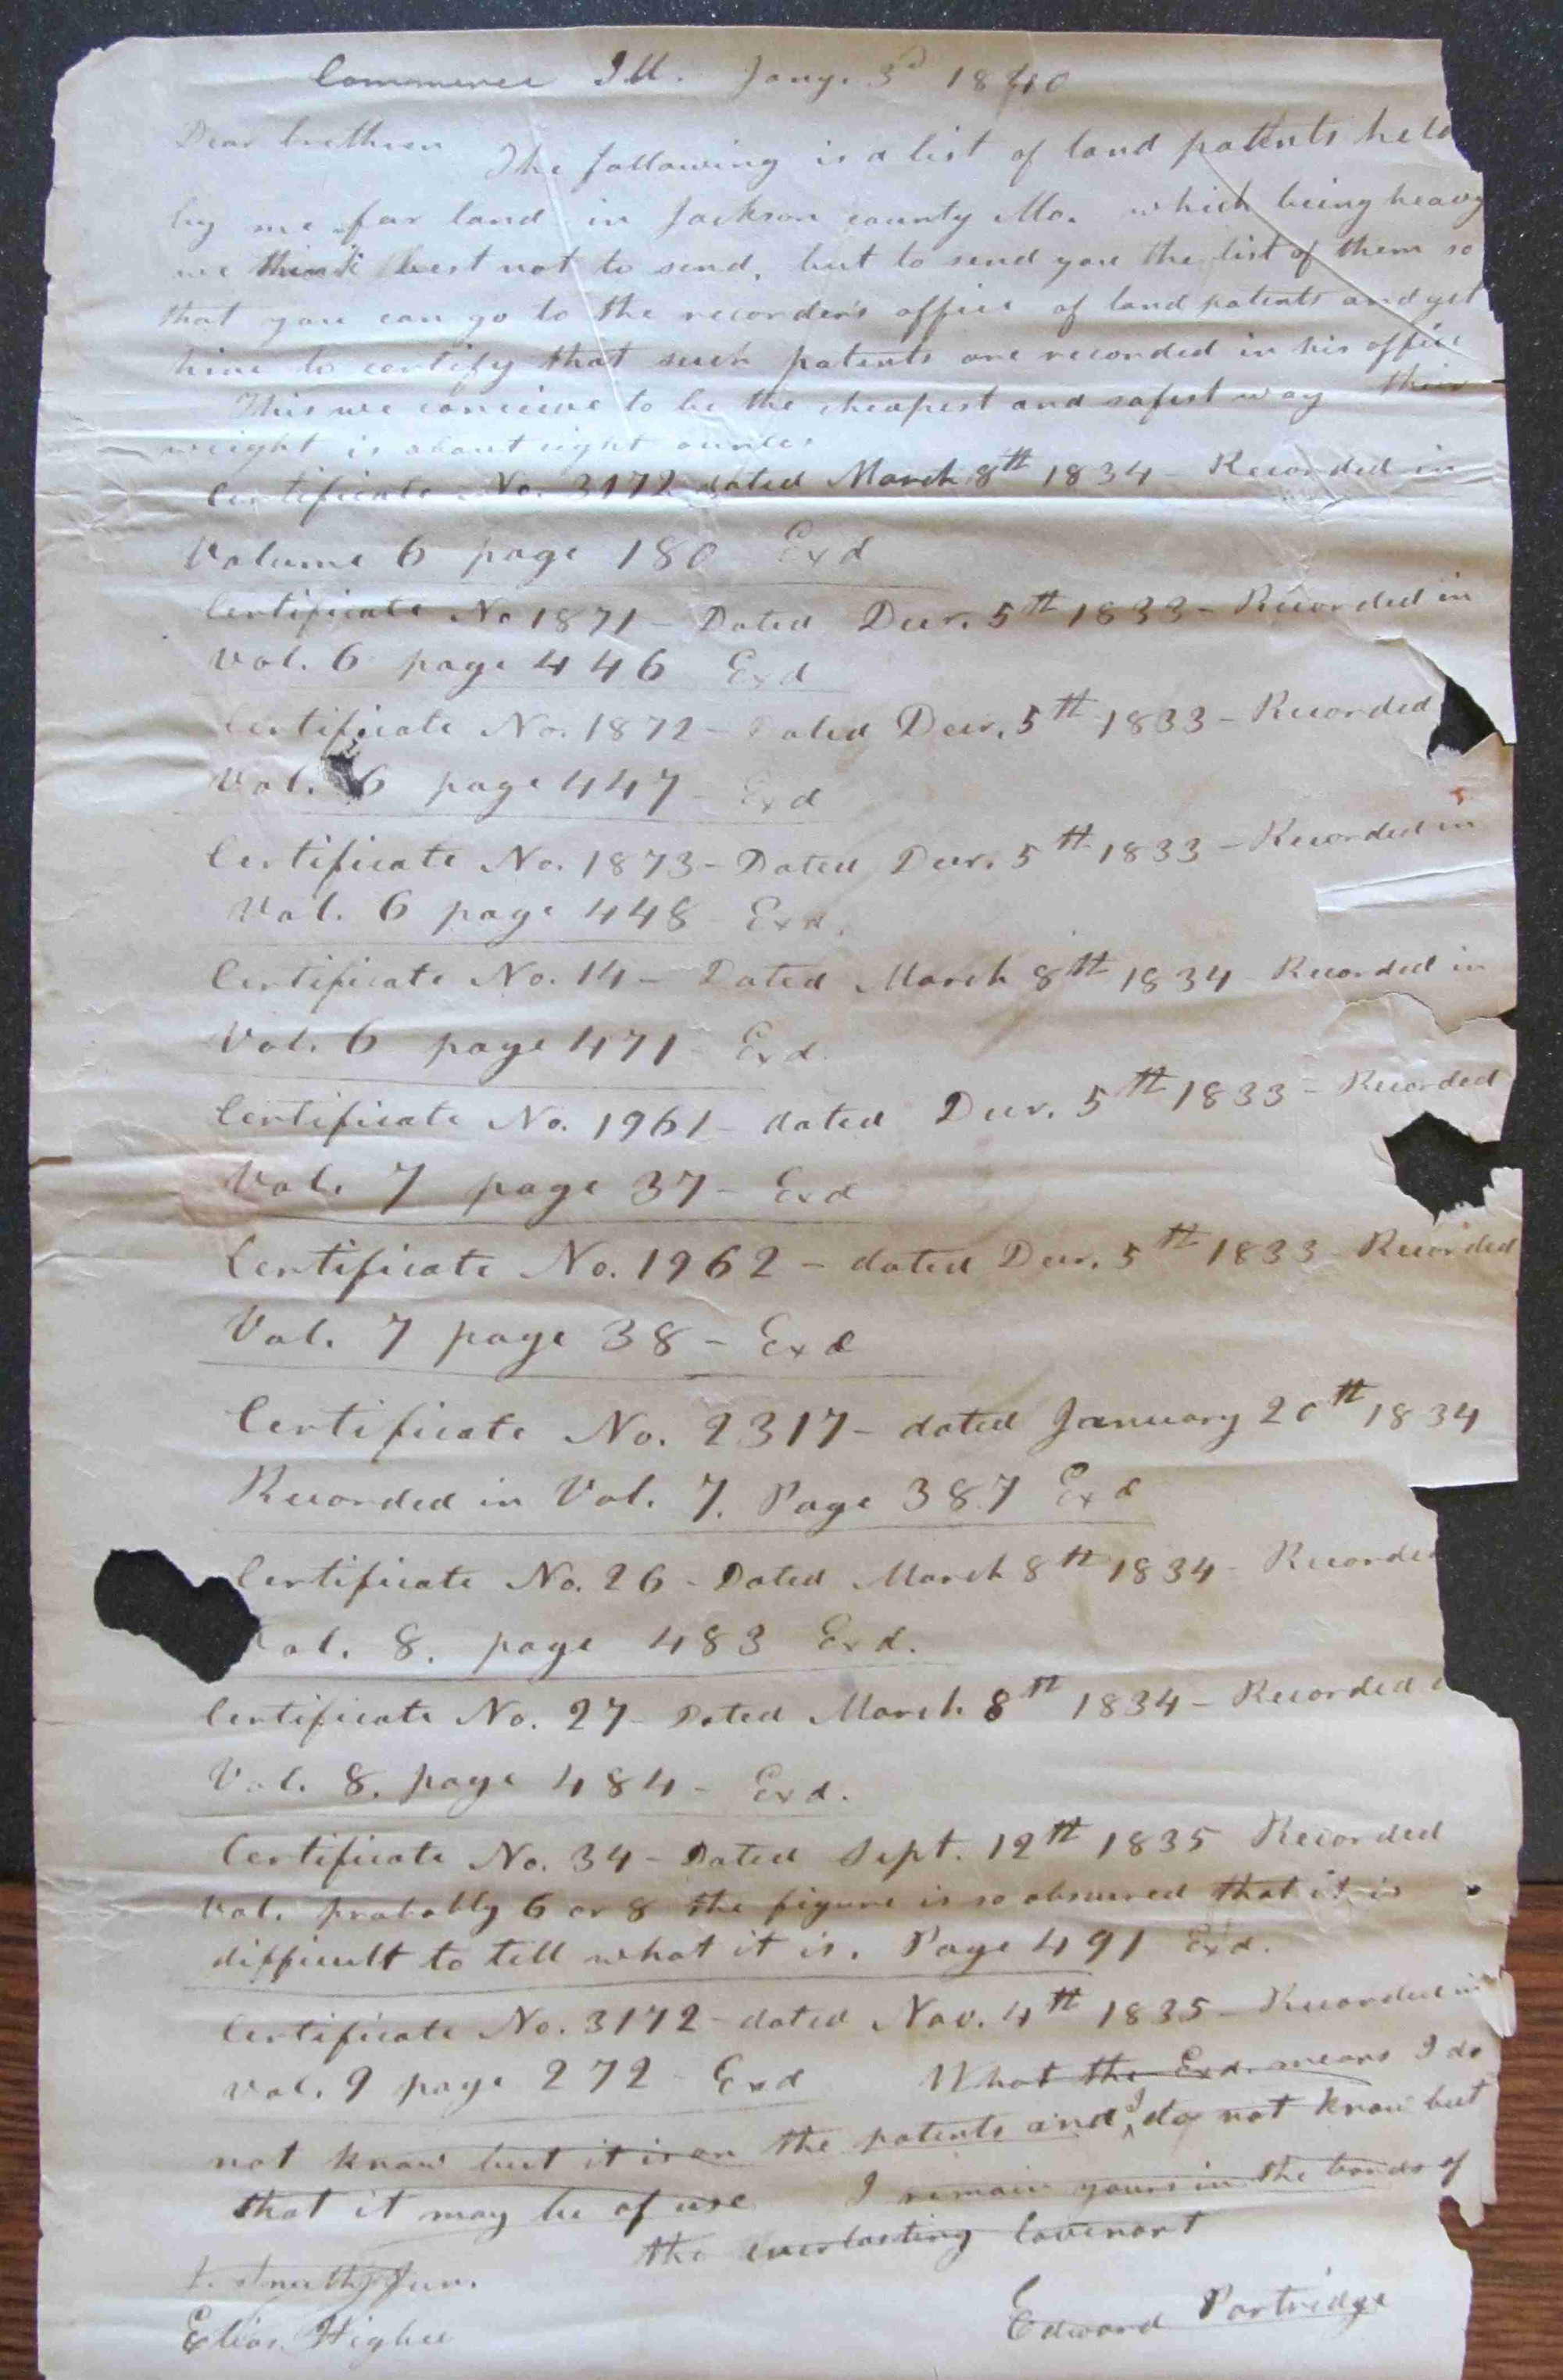 Commerce Ill. Jany. 3d 1840
Dear brethren The following is a list of land patents held
by me for land in Jackson county Mo. which being heavy
we think best not to send, but to send you the list of them so
that you can go to the recorder's office of land patents and get
him to certify that such patents are recorded in his office
This we conceive to be the cheapest and safest way their
weight is about eight ounces
Certificate No. 3172 dated March 8th 1834 - Recorded in
Volume 6 page 180 Exd
Certificate No 1871 - Dated Decr. 5th 1833 - Recorded in
Vol. 6 page 446 Exd
Certificate No. 1872 - Dated Decr. 5th 1833 - Recorded
Vol. 6 page 447 - Exd
Certificate No. 1873 - Dated Decr. 5th 1833 - Recorded in
Vol. 6 page 448 Exd.
Certificate No. 14 - Dated March 8th 1834 - Recorded in
Vol. 6 page 471 - Exd.
Certificate No. 1961 - dated Decr. 5th 1833 - Recorded
Vol. 7 page 37 - Exd
Certificate No. 1962 - dated Decr. 5th 1833 Recorded
Vol. 7 page 38 - Exd
Certificate No. 2317 - dated January 20th 1834
Recorded in Vol. 7. Page 387 Exd
Certificate No. 26 - Dated March 8th 1834 - Recorded
Vol. 8. page 483 Exd.
Certificate No. 27 - Dated March 8th 1834 - Recorded
Vol. 8. page 484 - Exd.
Certificate No. 34 - Dated Sept. 12th 1835 Recorded
Vol. probably 6 or 8 the figure is so obscured that it is
difficult to tell what it is. Page 491 Exd.
Certificate No. 3172 - dated Nov. 4th 1835 - Recorded in
Vol. 9 page 272 - Exd What the Exd. means I do
not know but it is on the patents and I do not know but
that it may be of use I remain yours in the bonds of
the everlasting Covenant
J. Smith Jun.
Elias Higbee
Edward Partridge